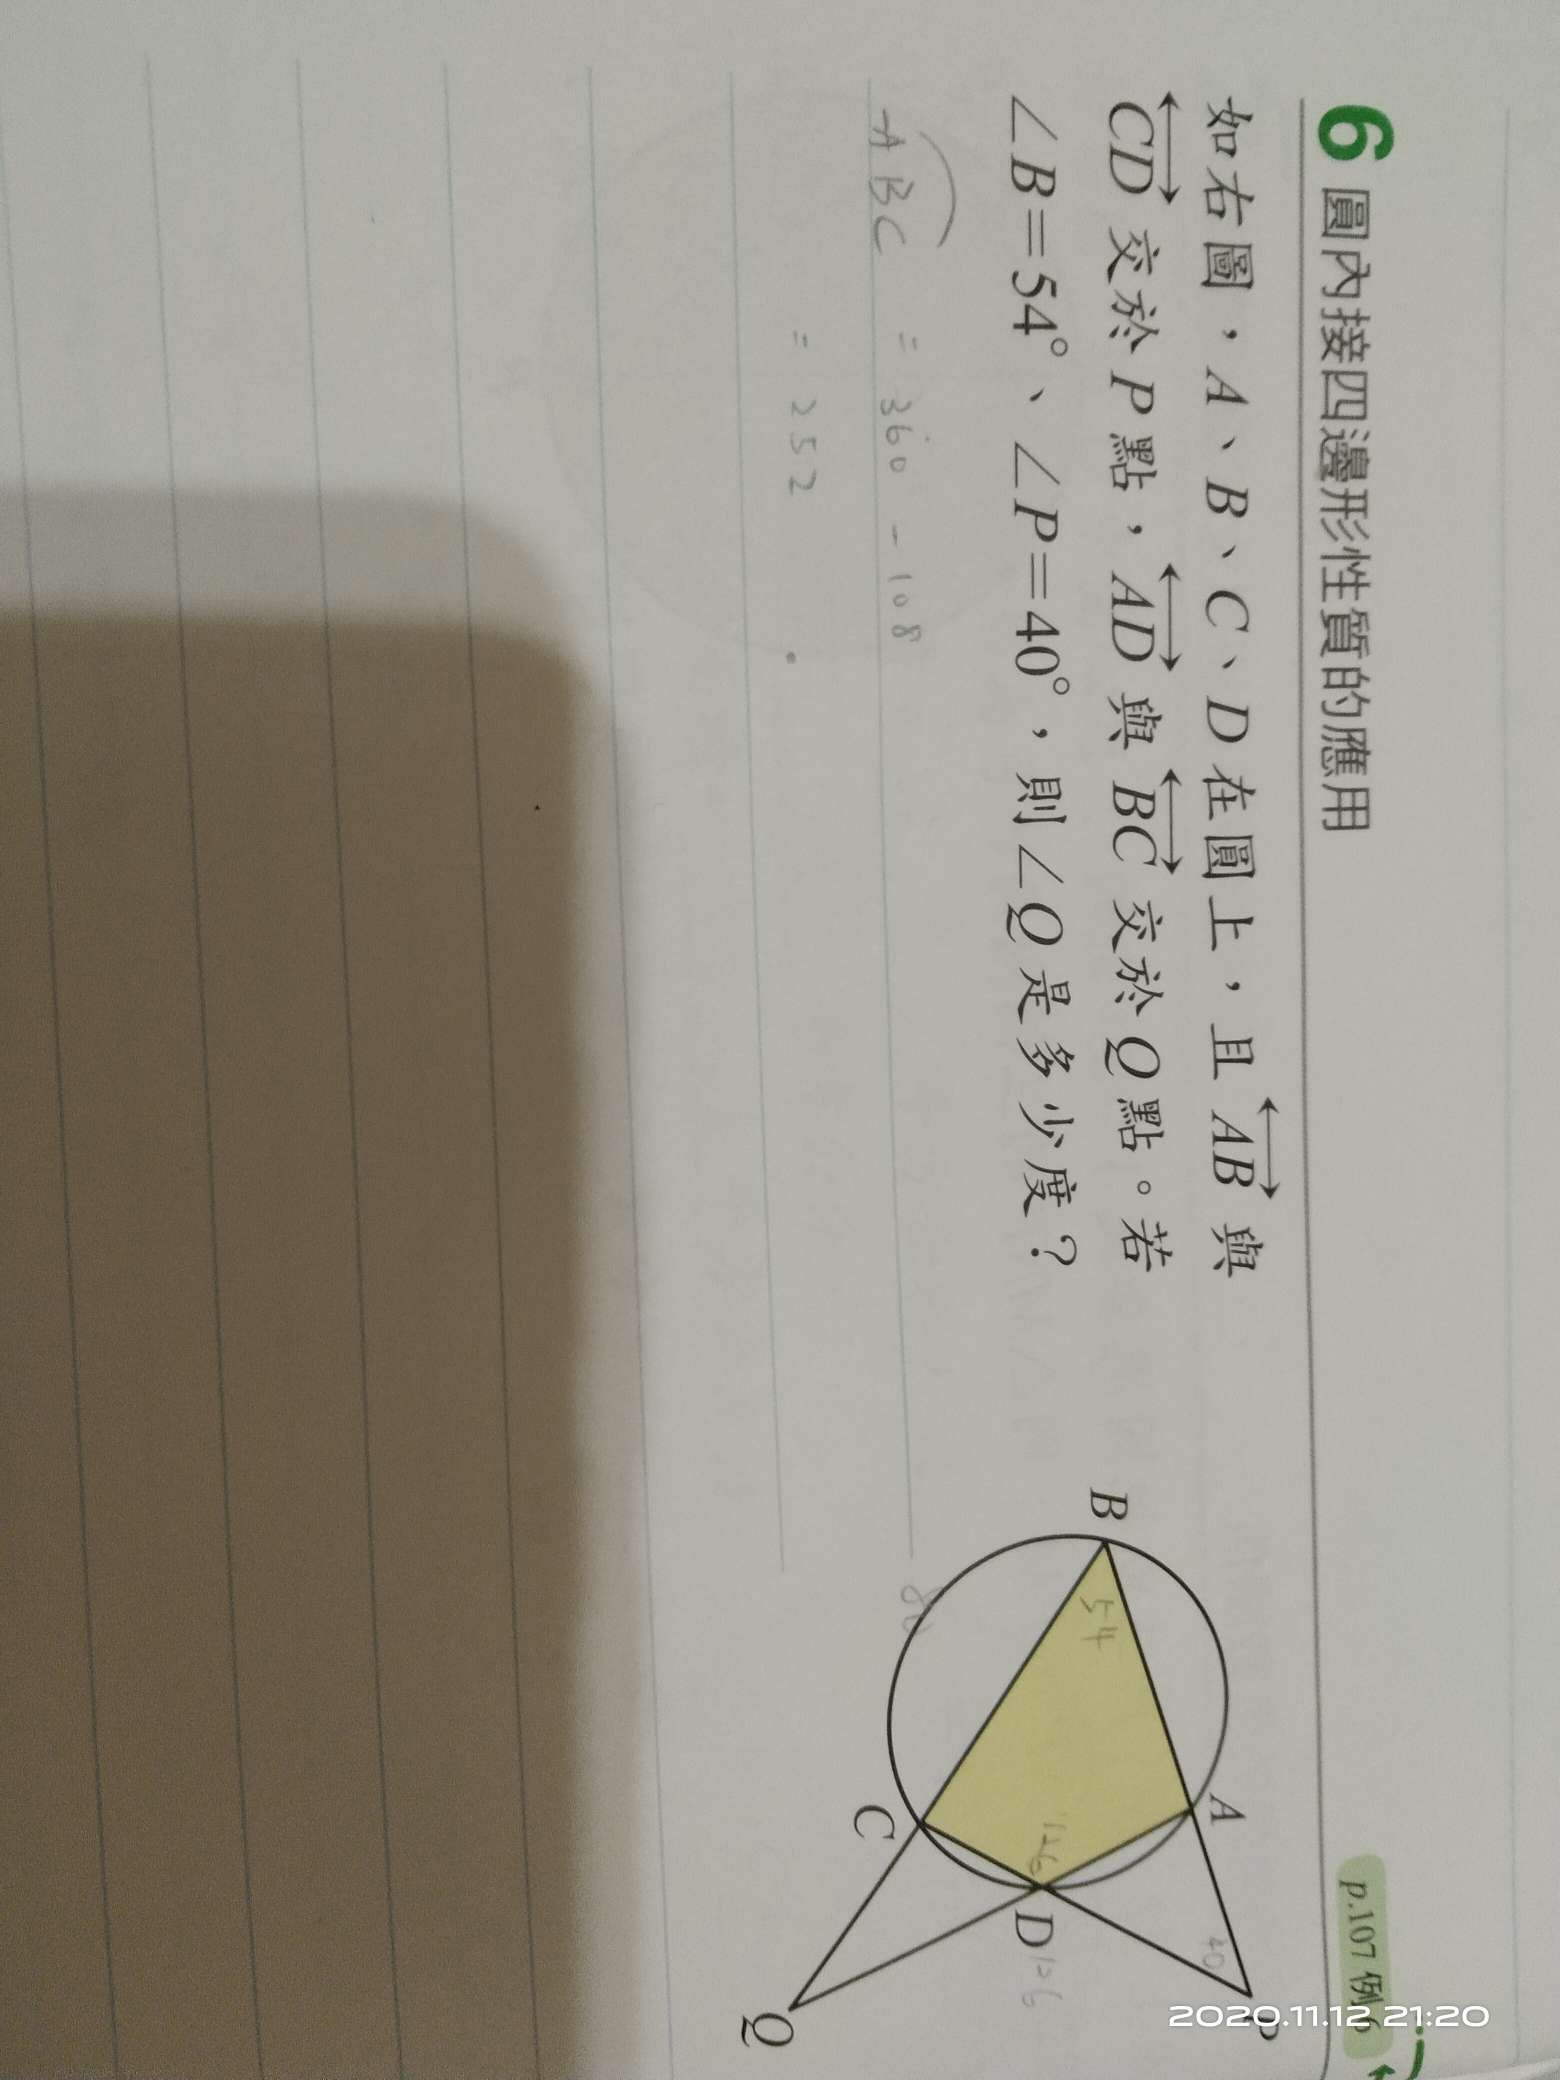 6 圓內接四邊形性質的應用
p.107 例6
如右圖，A、B、C、D在圓上，且 AB 與
CD 交於P點，AD 與 BC 交於Q點。若
∠B=54°、∠P=40°，則∠Q是多少度？
B
A
P
C
D
Q
54
126
126
40
ABC = 360 - 108
= 252
2020.11.12 21:20